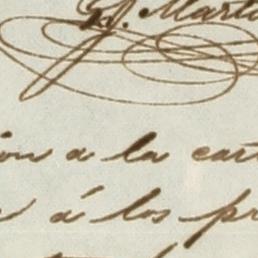 D. Marti
ón a la cart
á los pr